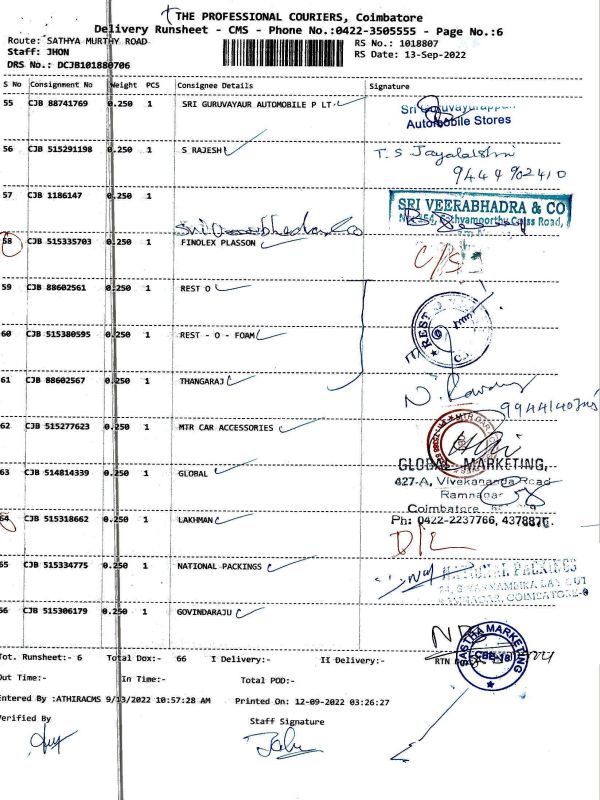 THE PROFESSIONAL COURIERS, Coimbatore
Delivery Runsheet - CMS - Phone No.:0422-3505555 - Page No.:6
Route: SATHYA MURTHY ROAD
Staff: JHON
DRS No.: DCJB101880706
RS No.: 1018807
RS Date: 13-Sep-2022
S No Consignment No Weight PCS Consignee Details Signature
55 CJB 88741769 0.250 1 SRI GURUVAYAUR AUTOMOBILE P LT
Sri Guruvayurappan
Automobile Stores
56 CJB 515291198 0.250 1 S RAJESH T.S Jayalakshmi
9444902410
57 CJB 1186147 0.250 1
SRI VEERABHADRA & CO
58 CJB 515335703 0.250 1 FINOLEX PLASSON C/S
59 CJB 88602561 0.250 1 REST O
REST
60 CJB 515380595 0.250 1 REST - O - FOAM
61 CJB 88602567 0.250 1 THANGARAJ
62 CJB 515277623 0.250 1 MTR CAR ACCESSORIES
63 CJB 514814339 0.250 1 GLOBAL
GLOBAL MARKETING,
427-A, Vivekananda Road
Ramnagar
Coimbatore
Ph: 0422-2237766, 4378876.
64 CJB 515318662 0.250 1 LAKHMAN D/L
65 CJB 515334775 0.250 1 NATIONAL PACKINGS
NATIONAL PACKINGS
66 CJB 515306179 0.250 1 GOVINDARAJU
SASTHA MARKETING
CBE-18
Tot. Runsheet:- 6 Total Dox:- 66 I Delivery:- II Delivery:- RTN
Out Time:- In Time:- Total POD:-
Entered By :ATHIRACMS 9/13/2022 10:57:28 AM Printed On: 12-09-2022 03:26:27
Verified By Staff Signature